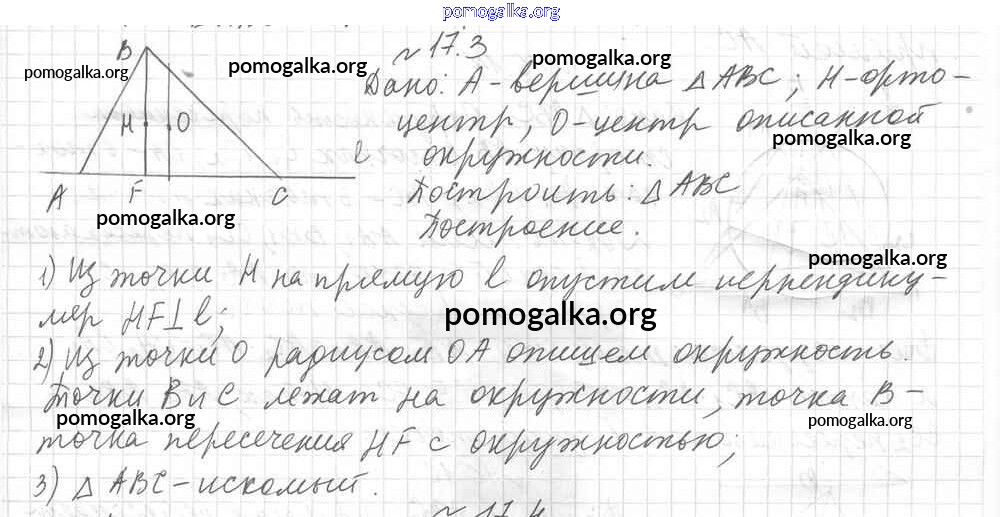 pomogalka.org
№ 17.3
Дано: А-вершина △ АВС; Н-орто-
центр, О-центр описанной
окружности.
Построить: △ АВС
Построение.
B
H
O
l
A
F
C
1) Из точки Н на прямую l опустим перпендику-
ляр HF⊥l;
2) Из точки О радиусом ОА опишем окружность.
Точки В и С лежат на окружности, точка В-
точка пересечения HF с окружностью;
3) △ АВС-искомый.
№ 17.4
pomogalka.org
pomogalka.org
pomogalka.org
pomogalka.org
pomogalka.org
pomogalka.org
pomogalka.org
pomogalka.org
pomogalka.org